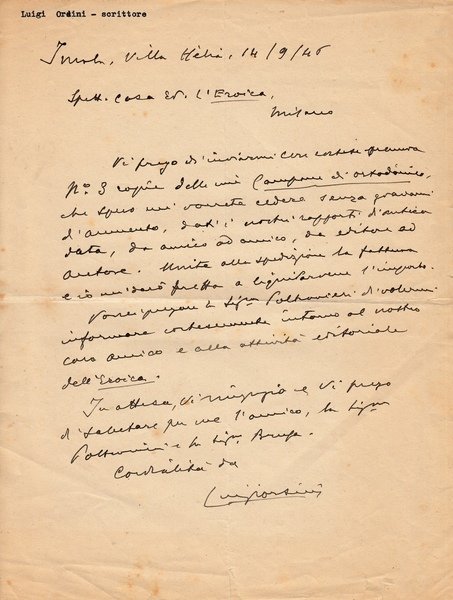 Luigi Ordini - scrittore
Imola, Villa Hebé, 14/9/46
Spett. Casa Ed. L'Eroica,
Milano
Vi prego di inviarmi con cortese premura
N.° 3 copie delle mie Campane di ortodònico,
che spero mi vorrete cedere senza gravami
d'aumento, dati i nostri rapporti d'antica
data, da amico ad amico, da editore ad
autore. Unite alla spedizione la fattura
e io mi darò fretta a liquidarvene l'importo.
Vorrei pregare la Sig.na Poltronieri di volermi
informare cortesemente intorno al nostro
caro amico e alla attività editoriale
dell'Eroica.
In attesa, Vi ringrazio e Vi prego
di salutare per me l'amico, la Sig.na
Poltronieri e la Sig.
Cordialità da
Luigi Orsini